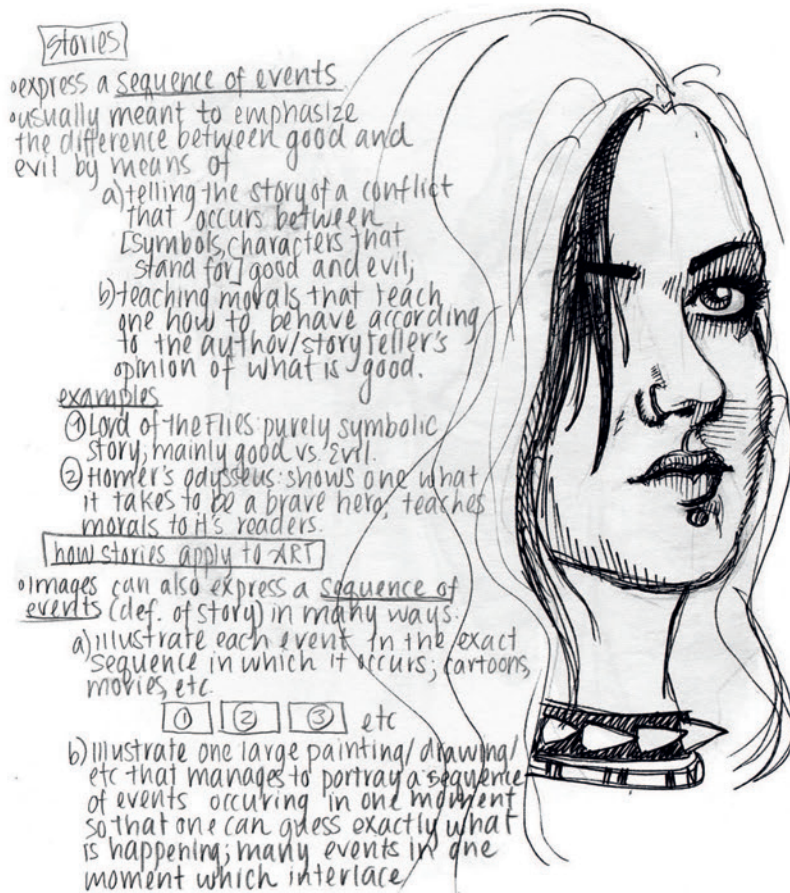 stories
•express a sequence of events
•usually meant to emphasize
the difference between good and
evil by means of
a) telling the story of a conflict
that occurs between
[symbols, characters that
stand for] good and evil;
b) teaching morals that teach
one how to behave according
to the author/storyteller's
opinion of what is good.
examples
① Lord of the Flies: purely symbolic
story; mainly good vs. Evil.
② Homer's odysseus: shows one what
it takes to be a brave hero; teaches
morals to it's readers.
how stories apply to ART
•Images can also express a sequence of
events (def. of story) in many ways.
a) illustrate each event in the exact
sequence in which it occurs; cartoons,
movies, etc.
① ② ③ etc
b) illustrate one large painting/drawing/
etc that manages to portray a sequence
of events occuring in one moment
so that one can guess exactly what
is happening; many events in one
moment which interlace